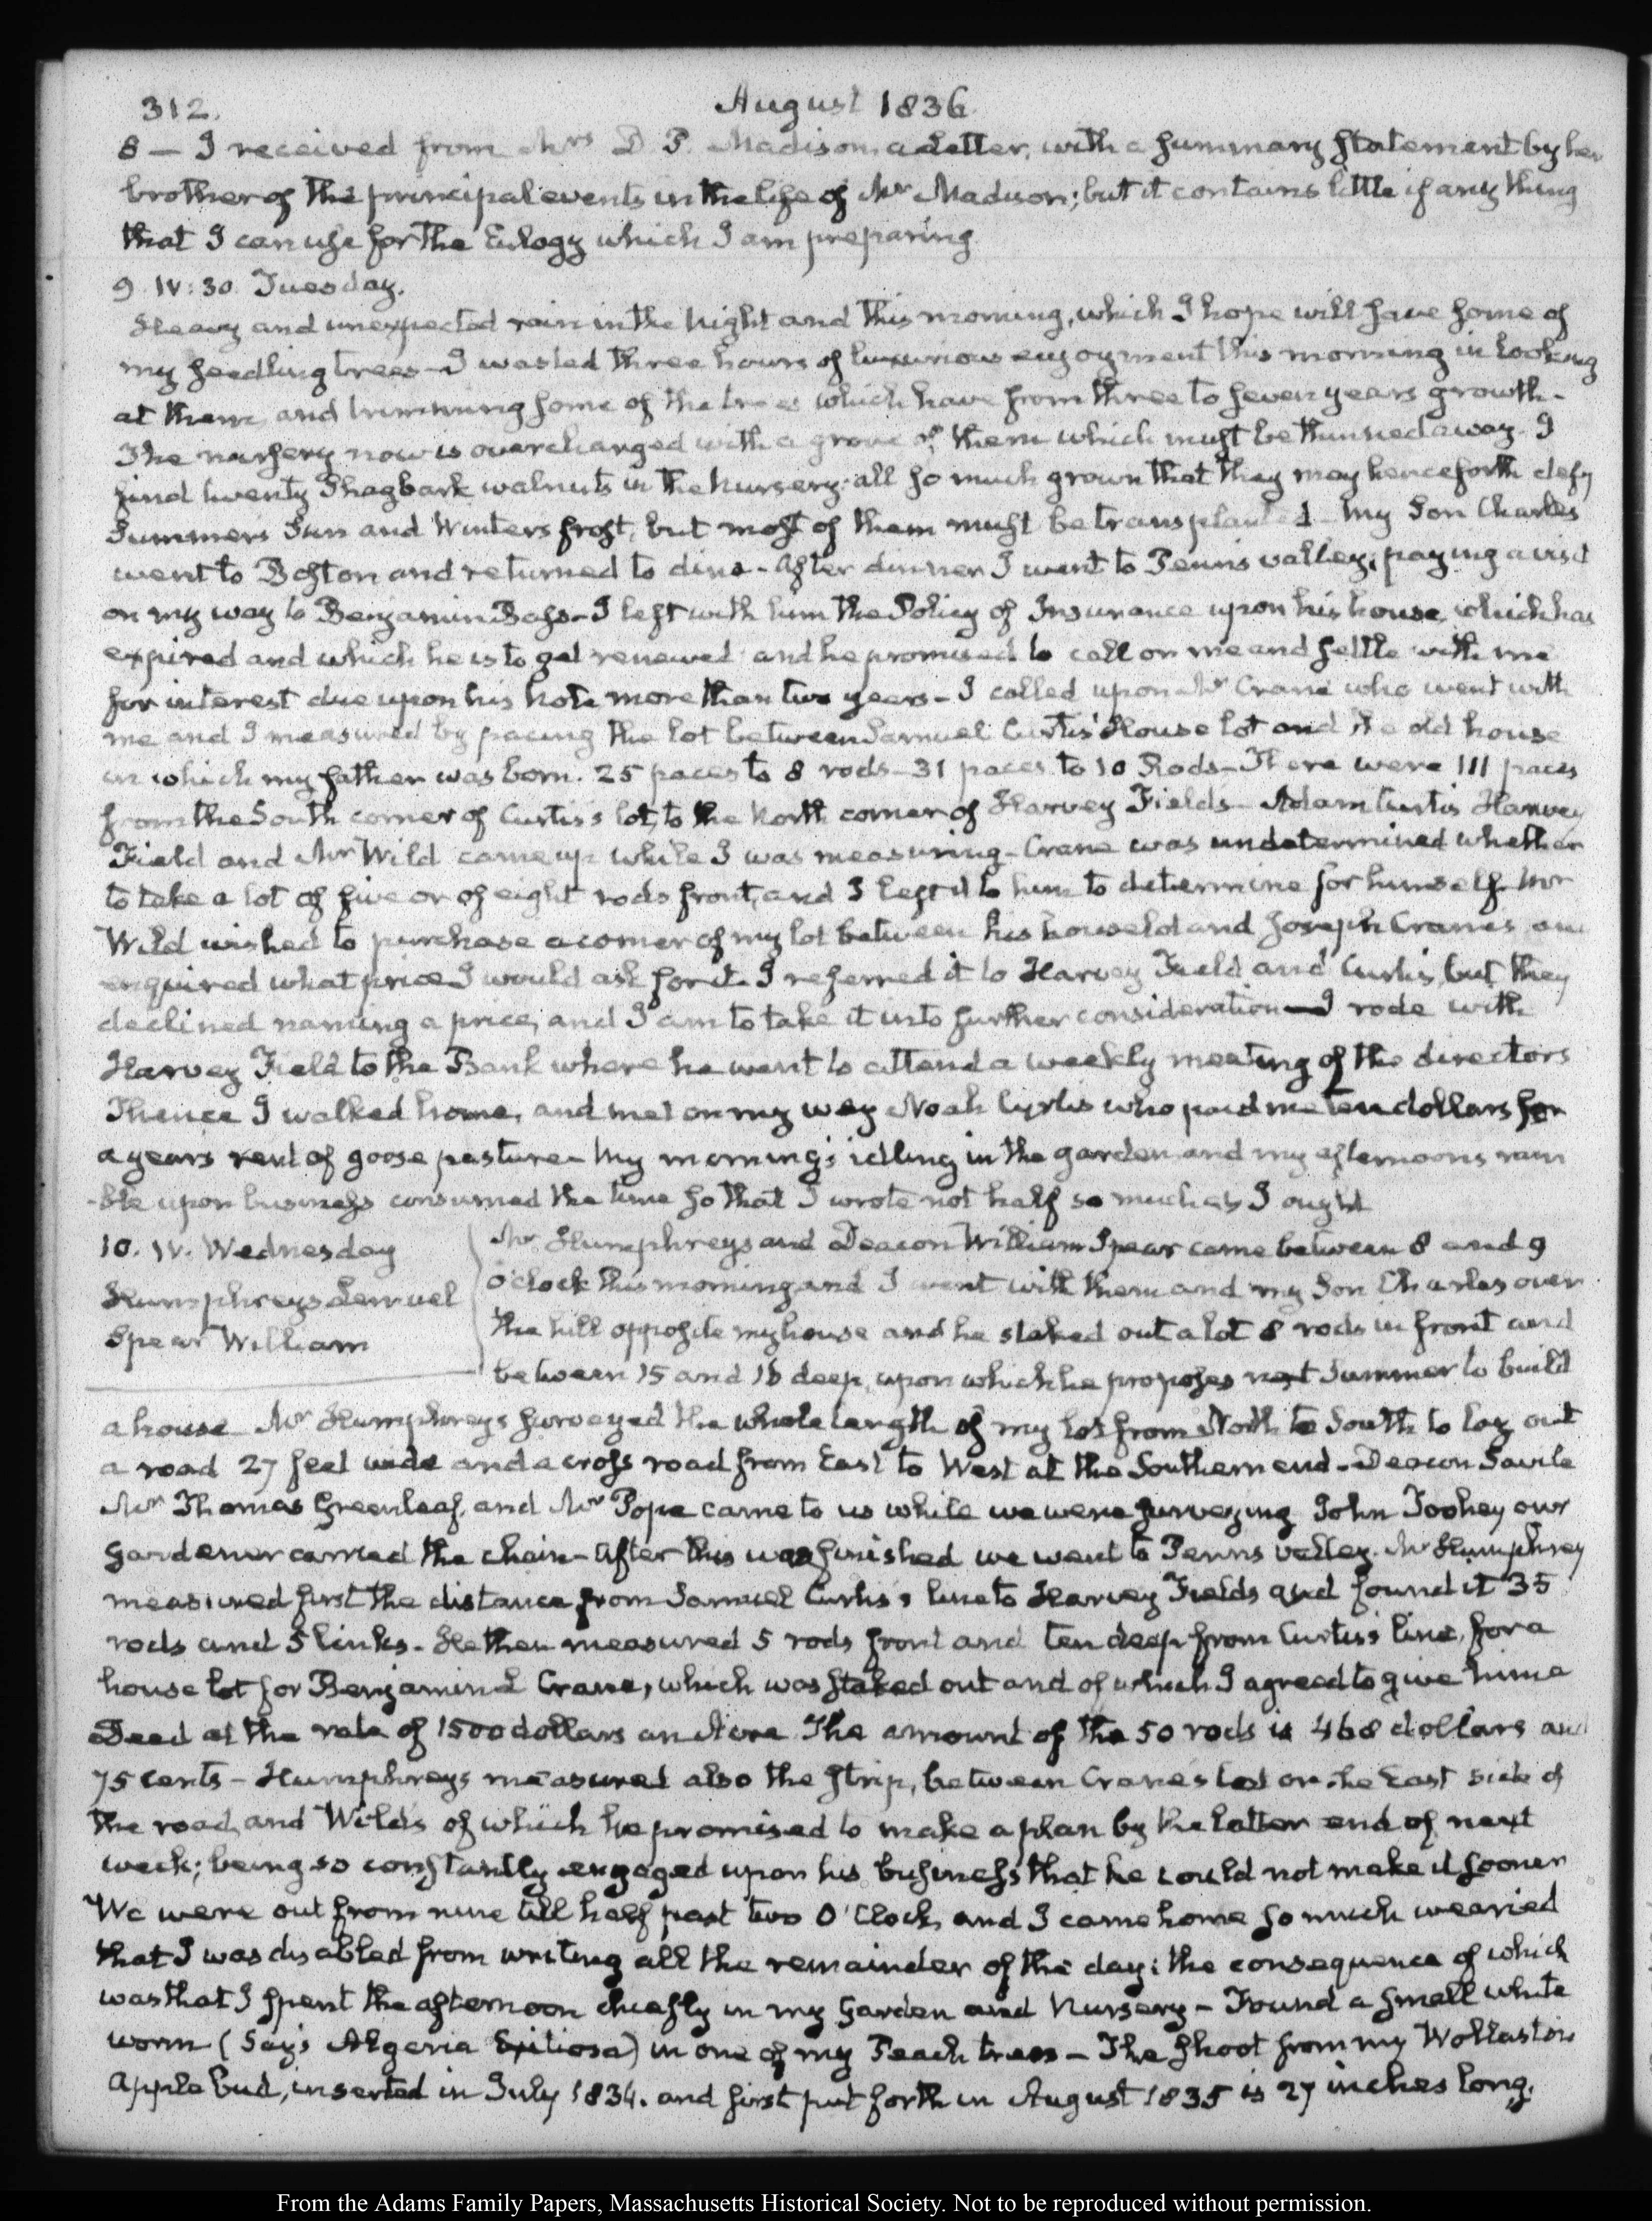 312.
August 1836
8 — I received from Mrs D. P. Madison a Letter, with a summary statement by her
brother of the principal events in the life of Mr Madison; but it contains little if any thing
that I can use for the Eulogy which I am preparing
9. IV:30. Tuesday.
Heavy and unexpected rain in the Night and this morning, which I hope will save some of
my seedling trees — I wasted three hours of luxurious enjoyment this morning in looking
at them, and trimming some of the trees which have from three to seven years growth.
The nursery now is overcharged with a grove of them which must be thinned away. I
find twenty Shagbark walnuts in the Nursery; all so much grown that they may henceforth defy
Summers Sun and Winters frost, but most of them must be transplanted — My Son Charles
went to Boston and returned to dine — After dinner I went to Penns valley; paying a visit
on my way to Benjamin Bass — I left with him the Policy of Insurance upon his house, which has
expired and which he is to get renewed and he promised to call on me and settle with me
for interest due upon his Note more than two years — I called upon Mr Crane who went with
me and I measured by pacing the lot between Samuel Curtis' House lot and the old house
in which my father was born. 25 paces to 8 rods — 31 paces to 10 Rods — There were 111 paces
from the South corner of Curtis's lot, to the North corner of Harvey Fields — Adam Curtis Harvey
Field and Mr Wild came up while I was measuring — Crane was undetermined whether
to take a lot of five or of eight rods front, and I left it to him to determine for himself. Mr
Wild wished to purchase a corner of my lot between his house lot and Joseph Cranes and
enquired what price I would ask for it. I referred it to Harvey Field and Curtis, but they
declined naming a price, and I am to take it into further consideration — I rode with
Harvey Field to the Bank where he went to attend a weekly meeting of the directors
Thence I walked home, and met on my way Noah Curtis who paid me ten dollars for
a years rent of goose pasture — My morning's idling in the garden and my afternoons ram
-ble upon business consumed the time so that I wrote not half so much as I ought
10. IV. Wednesday
Humphreys Lemuel
Spear William
Mr Humphreys and Deacon William Spear came between 8 and 9
o'clock this morning and I went with them and my Son Charles over
the hill opposite my house and he staked out a lot 8 rods in front and
between 15 and 16 deep, upon which he proposes next Summer to build
a house — Mr Humphreys surveyed the whole length of my lot from North to South to lay out
a road 27 feet wide and a cross road from East to West at the Southern end — Deacon Savile
Mr Thomas Greenleaf, and Mr Pope came to us while we were surveying John Toohey our
Gardener carried the chain — After this was finished we went to Penns valley. Mr Humphrey
measured first the distance from Samuel Curtis's line to Harvey Fields and found it 35
rods and 5 links — He then measured 5 rods front and ten deep from Curtis's line, for a
house lot for Benjamin L Crane, which was staked out and of which I agreed to give him a
Deed at the rate of 1500 dollars an Acre The amount of the 50 rods is 468 dollars and
75 cents — Humphreys measured also the strip, between Crane's lot on the East side of
the road, and Wild's of which he promised to make a plan by the latter end of next
week; being so constantly engaged upon his business that he could not make it sooner
We were out from nine till half past two O'Clock, and I came home so much wearied
that I was disabled from writing all the remainder of the day; the consequence of which
was that I spent the afternoon chiefly in my Garden and Nursery — Found a small white
worm (Say's Algeria Exitiosa) in one of my Peach trees — The shoot from my Wollaston
Apple bud, inserted in July 1834. and first put forth in August 1835 is 27 inches long.
From the Adams Family Papers, Massachusetts Historical Society. Not to be reproduced without permission.